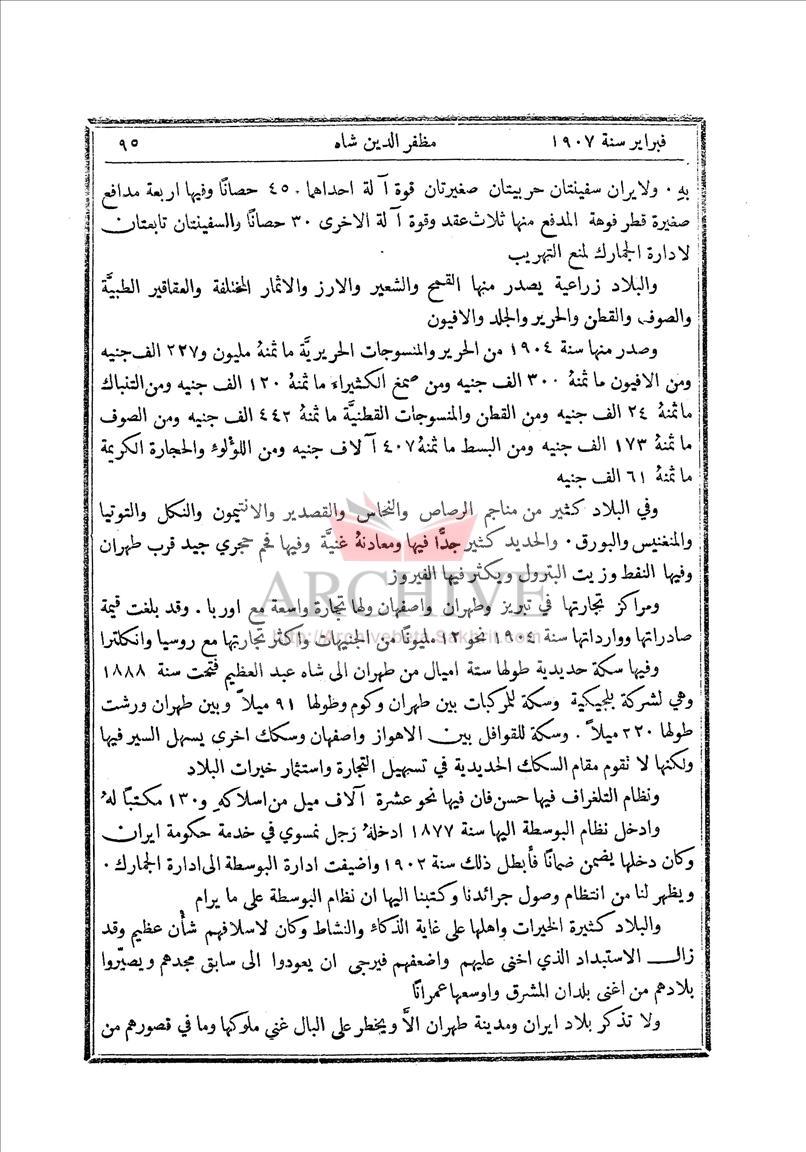 فبراير سنة ١٩٠٧ مظفر الدين شاه ٩٥
بهِ ٠ ولايران سفينتان حربيتان صغيرتان قوة آلة احداهما ٤٥٠ حصانًا وفيها اربعة مدافع
صغيرة قطر فوهة المدفع منها ثلاث عقد وقوة آلة الاخرى ٣٠ حصانًا والسفينتان تابعتان
لادارة الجمارك لمنع التهريب
والبلاد زراعية يصدر منها القمح والشعير والارز والاثمار المختلفة والعقاقير الطبيَّة
والصوف والقطن والحرير والجلد والافيون
وصدر منها سنة ١٩٠٤ من الحرير والمنسوجات الحريريَّة ما ثمنهُ مليون و٢٢٧ الف جنيه
ومن الافيون ما ثمنهُ ٣٠٠ الف جنيه ومن صمغ الكثيراء ما ثمنهُ ١٢٠ الف جنيه ومن التنباك
ما ثمنهُ ٢٤ الف جنيه ومن القطن والمنسوجات القطنيَّة ما ثمنهُ ٤٤٢ الف جنيه ومن الصوف
ما ثمنهُ ١٧٣ الف جنيه ومن البسط ما ثمنهُ ٤٠٧ آلاف جنيه ومن اللؤلوء والحجارة الكريمة
ما ثمنهُ ٦١ الف جنيه
وفي البلاد كثير من مناجم الرصاص والنحاس والقصدير والانتيمون والنكل والتوتيا
والمنغنيس والبورق ٠ والحديد كثير جدًّا فيها ومعادنهُ غنيَّة وفيها فحم حجري جيد قرب طهران
وفيها النفط وزيت البترول ويكثر فيها الفيروز
ARCHIVE
ومراكز تجارتها في تبريز وطهران واصفهان ولها تجارة واسعة مع اوربا . وقد بلغت قيمة
صادراتها ووارداتها سنة ١٩٠٤ نحو ١٢ مليونًا من الجنيهات واكثر تجارتها مع روسيا وانكلترا
http://Archivebeta.Sakhrit.com
وفيها سكة حديدية طولها ستة اميال من طهران الى شاه عبد العظيم فتحت سنة ١٨٨٨
وهي لشركة بلجيكية وسكة للمركبات بين طهران وكوم وطولها ٩١ ميلاً وبين طهران ورشت
طولها ٢٢٠ ميلاً . وسكة للقوافل بين الاهواز واصفهان وسكك اخرى يسهل السير فيها
ولكنها لا تقوم مقام السكك الحديدية في تسهيل التجارة واستثمار خيرات البلاد
ونظام التلغراف فيها حسن فان فيها نحو عشرة آلاف ميل من اسلاكهِ و١٣٠ مكتبًا لهُ
وادخل نظام البوسطة اليها سنة ١٨٧٧ ادخلهُ رجل نمسوي في خدمة حكومة ايران
وكان دخلها يضمن ضمانًا فأبطل ذلك سنة ١٩٠٢ واضيفت ادارة البوسطة الى ادارة الجمارك ٠
ويظهر لنا من انتظام وصول جرائدنا وكتبنا اليها ان نظام البوسطة على ما يرام
والبلاد كثيرة الخيرات واهلها على غاية الذكاء والنشاط وكان لاسلافهم شأن عظيم وقد
زال الاستبداد الذي اخنى عليهم واضعفهم فيرجى ان يعودوا الى سابق مجدهم ويصيّروا
بلادهم من اغنى بلدان المشرق واوسعها عمرانًا
ولا تذكر بلاد ايران ومدينة طهران الاَّ ويخطر على البال غنى ملوكها وما في قصورهم من